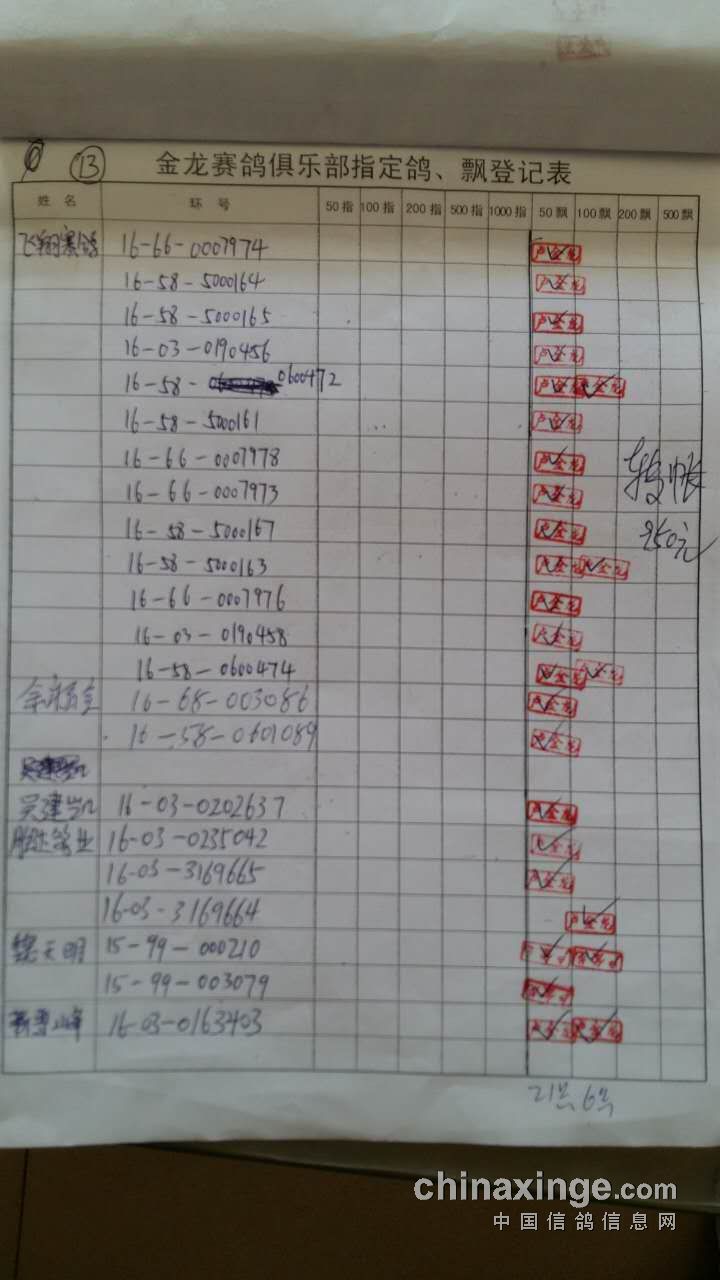 13 金龙赛鸽俱乐部指定鸽、飘登记表
姓名 环号 50指 100指 200指 500指 1000指 50飘 100飘 200飘 500飘
飞翔赛鸽 16-66-0007974
16-58-5000164
16-58-5000165
16-03-0190456
16-58-0600472
16-58-5000161
16-66-0007978
16-66-0007973
16-58-5000167
950元
16-58-5000163
16-66-0007976
16-03-0190458
16-58-0600474
16-68-003086
16-58-0601089
吴建凯 16-03-0202637
16-03-0235042
16-03-3169665
16-03-3169664
魏天明 15-99-000210
15-99-003079
16-03-0163403
21 6
chinaxinge.com
中国信鸽信息网